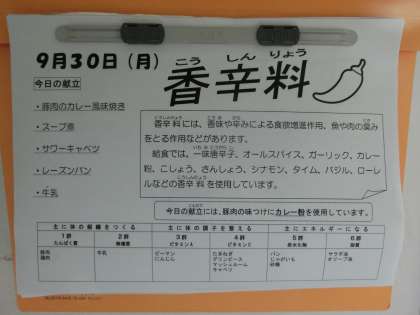 9月30日(月)
こう しん りょう
香辛料
今日の献立
・豚肉のカレー風味焼き
・スープ煮
・サワーキャベツ
・レーズンパン
・牛乳
香辛料には、香味や辛みによる食欲増進作用、魚や肉の臭み
をとる作用などがあります。
給食では、一味唐辛子、オールスパイス、ガーリック、カレー
粉、こしょう、さんしょう、シナモン、タイム、バジル、ローレ
ルなどの香辛料を使用しています。
今日の献立には、豚肉の味つけにカレー粉を使用しています。
主に体の組織をつくる 主に体の調子を整える 主にエネルギーになる
1群 2群 3群 4群 5群 6群
たんぱく質 無機質 ビタミンA ビタミンC 炭水化物 脂質
豚肉 牛乳 ピーマン たまねぎ パン サラダ油
鶏肉 にんじん グリンピース じゃがいも オリーブ油
マッシュルーム 砂糖
キャベツ